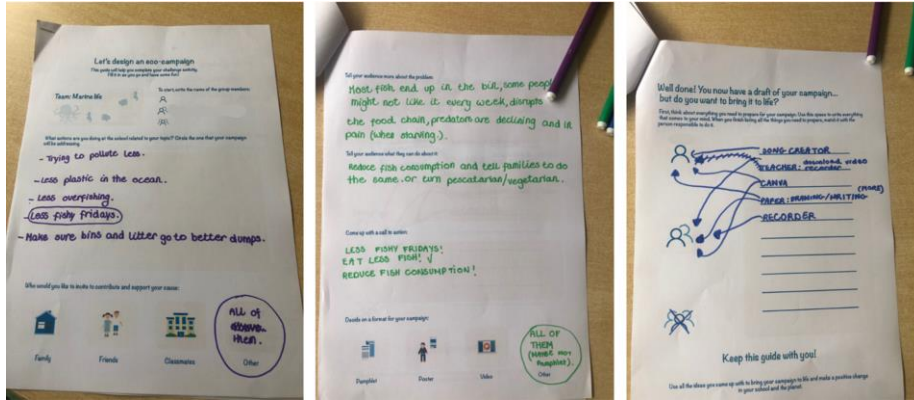 Let's design an eco-campaign
This guide will help you complete your challenge activity.
Fill it in as you go and have some fun!
Team: Marine life
To start, write the name of the group members:
What actions are you doing at the school related to your topic? Circle the one that your campaign
will be addressing
- Trying to pollute less.
- Less plastic in the ocean.
- Less overfishing.
- Less fishy fridays.
- Make sure bins and litter go to better dumps.
Who would you like to invite to contribute and support your cause:
Family
Friends
Classmates
ALL OF
them.
Other
Tell your audience more about the problem:
Most fish end up in the bin, some people
might not like it every week, disrupts
the food chain, predators are declining and in
pain (when starving.).
Tell your audience what they can do about it:
Reduce fish consumption and tell families to do
the same. Or turn pescatarian/vegetarian.
Come up with a call to action:
LESS FISHY FRIDAYS!
EAT LESS FISH!
REDUCE FISH CONSUMPTION!
Decide on a format for your campaign:
Pamphlet
Poster
Video
ALL OF
THEM
(MAYBE NOT
Pamphlet).
Other
Well done! You now have a draft of your campaign...
but do you want to bring it to life?
First, think about everything you need to prepare for your campaign. Use this space to write everything
that comes to your mind. When you finish listing all the things you need to prepare, match it with the
person responsible to do it.
SONG CREATOR
TEACHER: download video
recorder
CANVA
PAPER: DRAWING/WRITING (MORE)
RECORDER
Keep this guide with you!
Use all the ideas you came up with to bring your campaign to life and make a positive change
in your school and the planet.